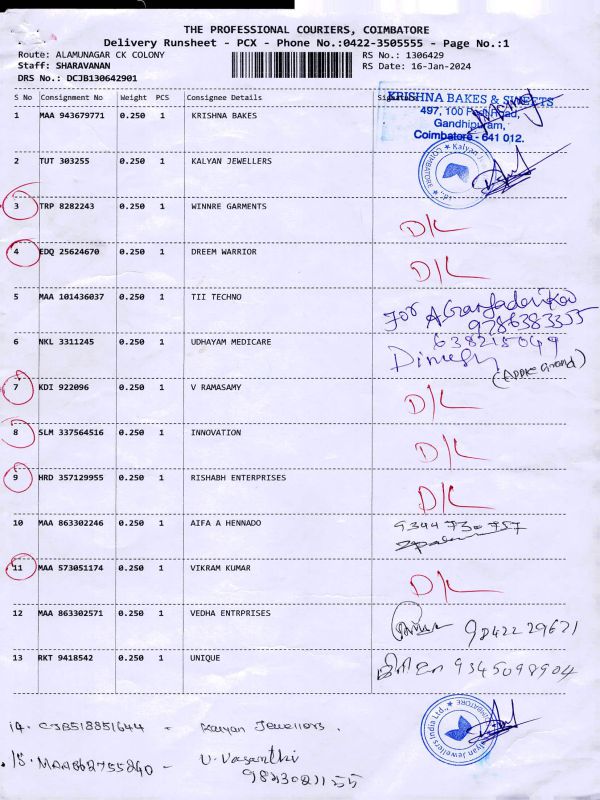 THE PROFESSIONAL COURIERS, COIMBATORE
Delivery Runsheet - PCX - Phone No.:0422-3505555 - Page No.:1
Route: ALAMUNAGAR CK COLONY
RS No.: 1306429
Staff: SHARAVANAN
RS Date: 16-Jan-2024
DRS No.: DCJB130642901
S No Consignment No Weight PCS Consignee Details
KRISHNA BAKES & SWEETS
497, 100 Feet Road,
Gandhipuram,
Coimbatore - 641 012.
1 MAA 943679771 0.250 1 KRISHNA BAKES
2 TUT 303255 0.250 1 KALYAN JEWELLERS
3 TRP 8282243 0.250 1 WINNRE GARMENTS D/L
4 EDQ 25624670 0.250 1 DREEM WARRIOR D/L
5 MAA 101436037 0.250 1 TII TECHNO For
9786383355
6 NKL 3311245 0.250 1 UDHAYAM MEDICARE 638215049
7 KDI 922096 0.250 1 V RAMASAMY D/L
8 SLM 337564516 0.250 1 INNOVATION D/L
9 HRD 357129955 0.250 1 RISHABH ENTERPRISES D/L
10 MAA 863302246 0.250 1 AIFA A HENNADO 9344 730 757
11 MAA 573051174 0.250 1 VIKRAM KUMAR D/L
12 MAA 863302571 0.250 1 VEDHA ENTRPRISES 9842229671
13 RKT 9418542 0.250 1 UNIQUE 9345098904
14. CJB518851644 - Kalyan Jewellers.
15. MAA862755240 - V. Vasanthi